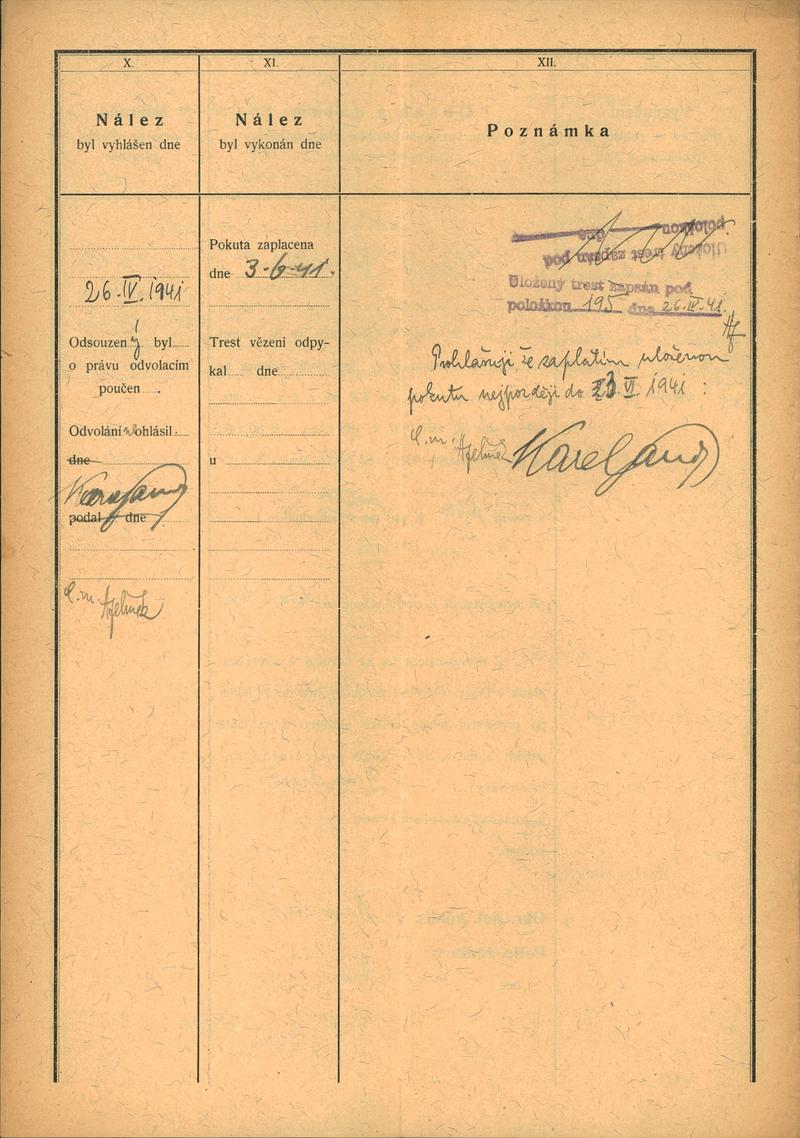 X.
Nález
byl vyhlášen dne
26.IV.1941
Odsouzený byl
o právu odvolacím
poučen
Odvolání neohlásil
dne
podal dne
XI.
Nález
byl vykonán dne
Pokuta zaplacena
dne 3.6.41.
Trest vězení odpy-
kal dne
u
XII.
Poznámka
položkou dne
Uložený trest zapsán pod
Uložený trest zapsán pod
položkou 195 dne 26.IV.41.
Prohlašuji že zaplatím uloženou
pokutu nejpozději do 3. VI 1941 :
Karel